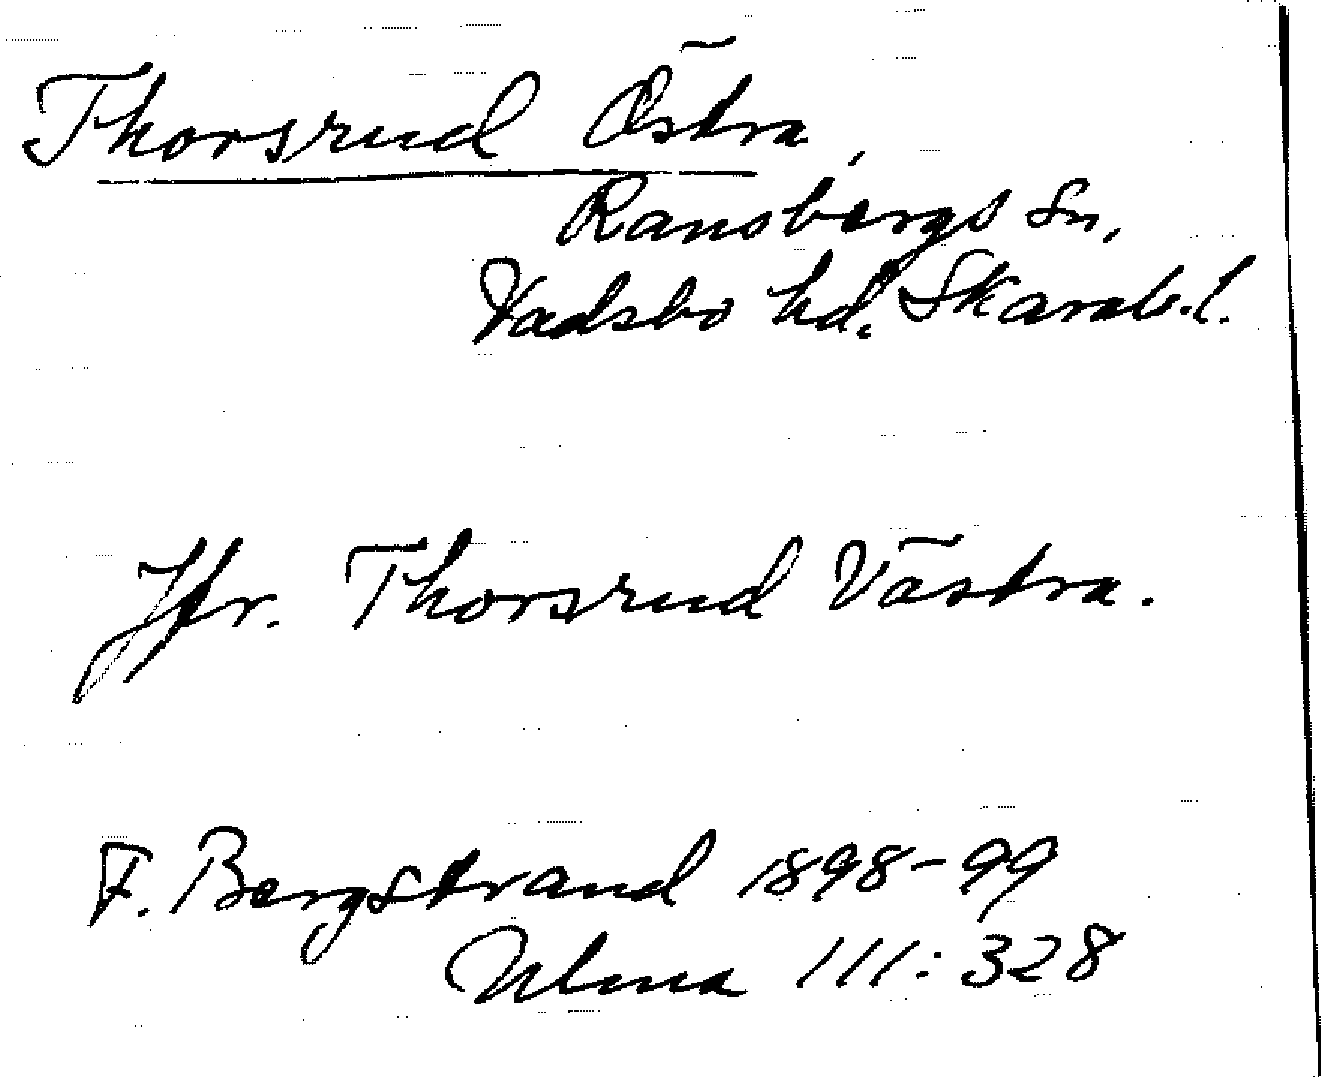 Thorsrud Östra,
Ransbergs Sn,
Vadsbo hd. Skarab.l.
Jfr. Thorsrud Västra.
F. Bergstrand 1898-99
Ulma 111:328